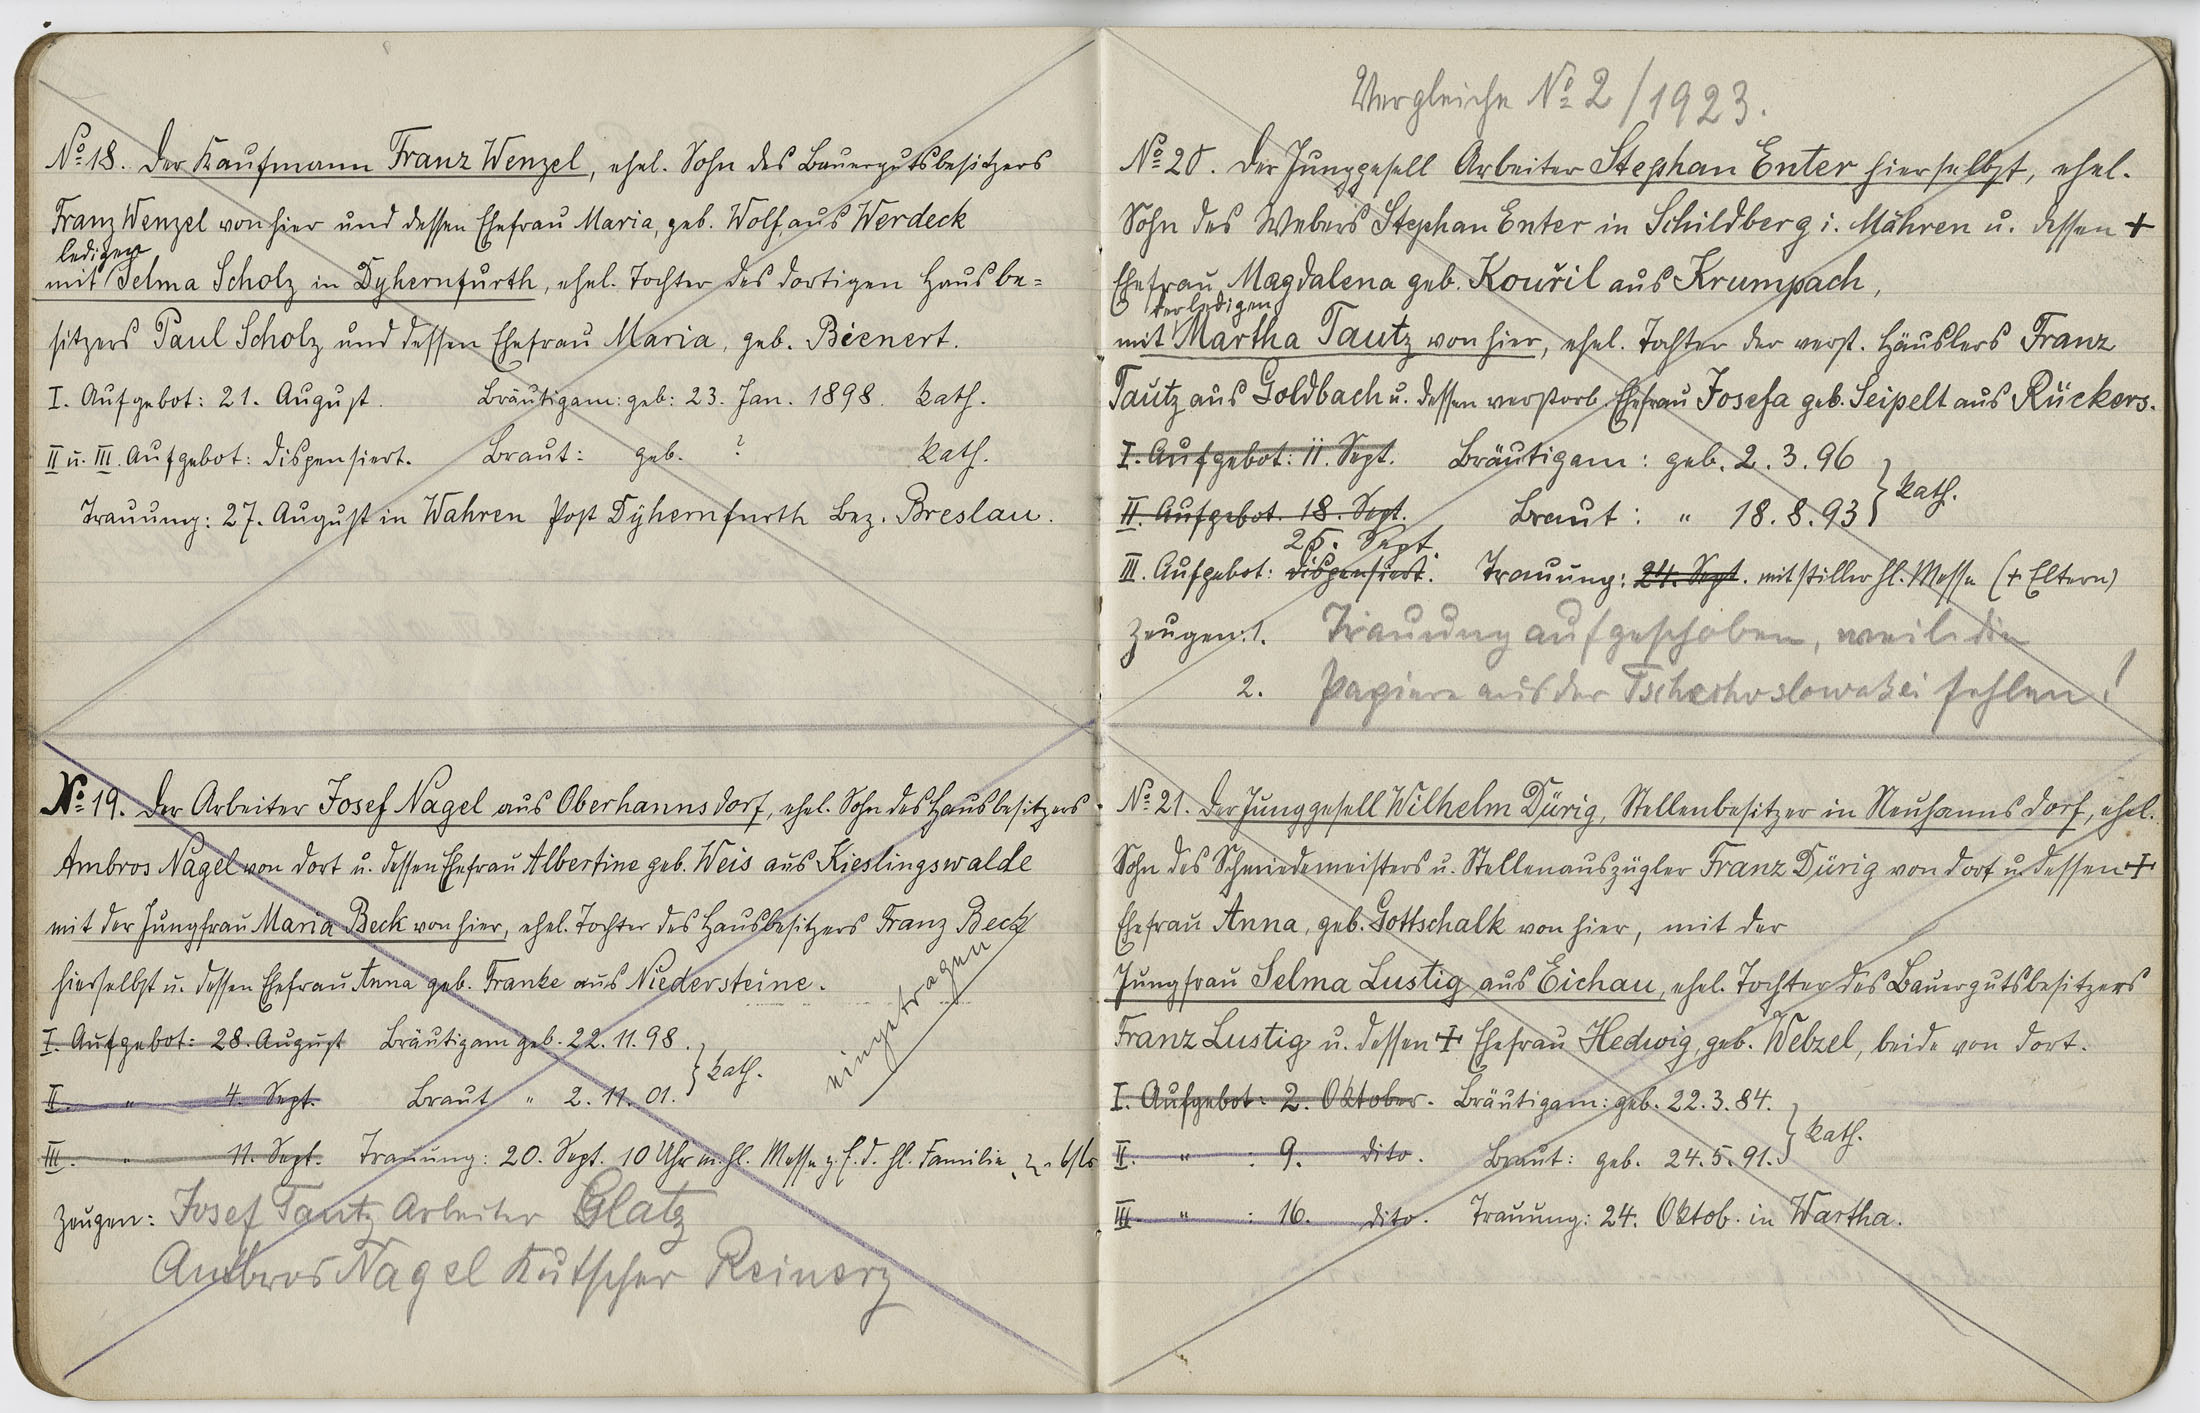 No 18. Der Kaufmann Franz Wenzel, ehel. Sohn des Bauergutsbesitzers
Franz Wenzel von hier und dessen Ehefrau Maria, geb. Wolf, aus Werdeck
ledigen
mit Selma Scholz in Dyhernfurth, ehel. Tochter des dortigen Hausbe=
sitzers Paul Scholz und dessen Ehefrau Maria, geb. Bienert.
I. Aufgebot: 21. August. Bräutigam: geb: 23. Jan. 1898. kath.
II u. III. Aufgebot: dispensiert. Braut: geb. ? kath.
Trauung: 27. August in Wahren Post Dyhernfurth Bez. Breslau.
No 19. Der Arbeiter Josef Nagel aus Oberhannsdorf, ehel. Sohn des Hausbesitzers
Ambros Nagel von dort u. dessen Ehefrau Albertine geb. Weis aus Kieslingswalde
mit der Jungfrau Maria Beck von hier, ehel. Tochter des Hausbesitzers Franz Beck
hierselbst u. dessen Ehefrau Anna geb. Franke aus Niedersteine.
eingetragen
I. Aufgebot: 28. August Bräutigam geb. 22. 11. 98.
II. " 4. Sept. Braut " 2. 11. 01. } kath.
III. " 11. Sept. Trauung: 20. Sept. 10 Uhr m. hl. Messe z. E. d. hl. Familie
Zeugen: Josef Tautz Arbeiter Glatz
Ambros Nagel Kutscher Reinerz
Vergleiche No 2/1923.
No 20. Der Junggesell Arbeiter Stephan Enter hierselbst, ehel.
Sohn des Webers Stephan Enter in Schildberg i. Mähren u. dessen +
Ehefrau Magdalena geb. Kouřil aus Krumpach,
der ledigen
mit Martha Tautz von hier, ehel. Tochter der verst. Häuslers Franz
Tautz aus Goldbach u. dessen verstorb. Ehefrau Josefa geb. Seipelt aus Rückers.
I. Aufgebot: 11. Sept. Bräutigam: geb. 2. 3. 96
II. Aufgebot. 18. Sept. Braut: " 18. 8. 93 } kath.
25. Sept.
III. Aufgebot: dispensiert. Trauung: 24. Sept. mit stiller hl. Messe (+ Eltern)
Zeugen: 1. Trauung aufgeschoben, weil die
2. Papiere aus der Tschechoslowakei fehlen!
No 21. Der Junggesell Wilhelm Dürig, Stellenbesitzer in Neuhannsdorf, ehel.
Sohn des Schmiedemeisters u. Stellenauszügler Franz Dürig von dort u. dessen +
Ehefrau Anna, geb. Gottschalk von hier, mit der
Jungfrau Selma Lustig aus Eichau, ehel. Tochter des Bauergutsbesitzers
Franz Lustig u. dessen + Ehefrau Hedwig, geb. Welzel, beide von dort.
I. Aufgebot: 2. Oktober. Bräutigam: geb. 22. 3. 84.
II. " : 9. dito. Braut: geb. 24. 5. 91. } kath.
III. " : 16. dito. Trauung: 24. Oktob. in Wartha.